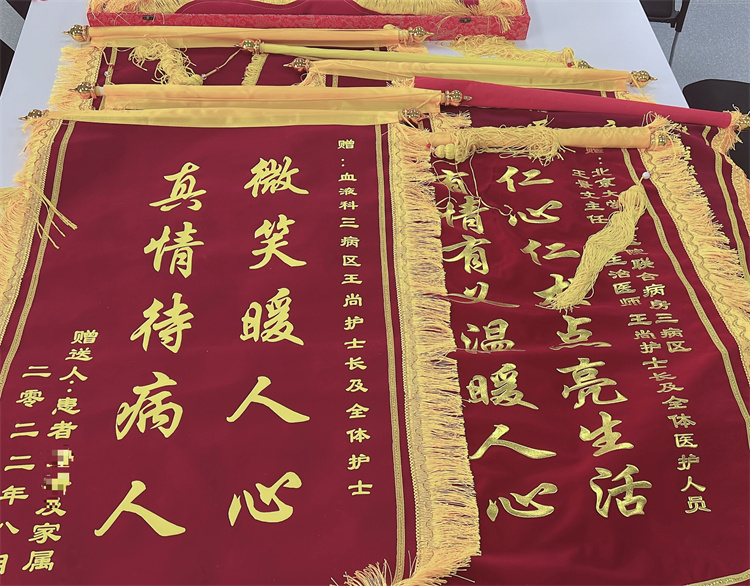 赠：血液科三病区王尚护士长及全体护士
微笑暖人心
真情待病人
赠送人：患者
及家属
二零二二年八月
北京大学
联合病房三病区
主任
主治医师王尚护士长及全体医护人员
仁心仁术点亮生活
有情有义温暖人心